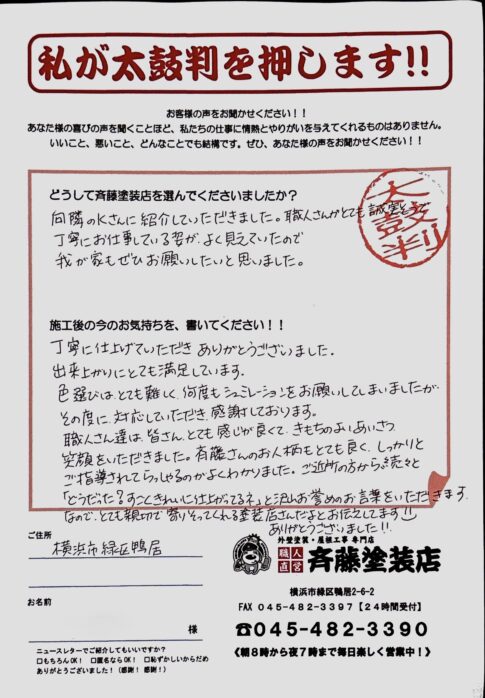 私が太鼓判を押します!!
お客様の声をお聞かせください！！
あなた様の喜びの声を聞くことほど、私たちの仕事に情熱とやりがいを与えてくれるものはありません。
いいこと、悪いこと、どんなことでも結構です。ぜひ、あなた様の声をお聞かせください！！
どうして斉藤塗装店を選んでくださいましたか？
向隣のKさんに紹介していただきました。職人さんがとても誠実で
丁寧にお仕事している姿が、よく見えていたので
我が家もぜひお願いしたいと思いました。
太鼓判
施工後の今のお気持ちを、書いてください！！
丁寧に仕上げていただきありがとうございました。
出来上がりにとても満足しています。
色選びはとても難しく、何度もシュミレーションをお願いしてしまいましたが、
その度に対応していただき、感謝しております。
職人さん達は、皆さん、とても感じが良くて、きもちのよいあいさつ
笑顔をいただきました。斉藤さんのお人柄もとても良く、しっかりと
ご指導されてらっしゃるのがよくわかりました。ご近所の方から続々と
「どうだった？すごくきれいに仕上がってるネ」と沢山お誉めのお言葉をいただきます
なので、とても親切で寄りそってくれる塗装店さんだよとお伝えしてます
ありがとうございました!!
ご住所
横浜市緑区鴨居
お名前
様
ニュースレターでご紹介してもいいですか？
□もちろんOK！ □匿名ならOK！ □恥ずかしいからだめ
ありがとうございました！（感謝！感謝！）
外壁塗装・屋根工事 専門店
職人直営 斉藤塗装店
横浜市緑区鴨居2-6-2
FAX 045-482-3397【24時間受付】
☎045-482-3390
《朝8時から夜7時まで毎日楽しく営業中！》